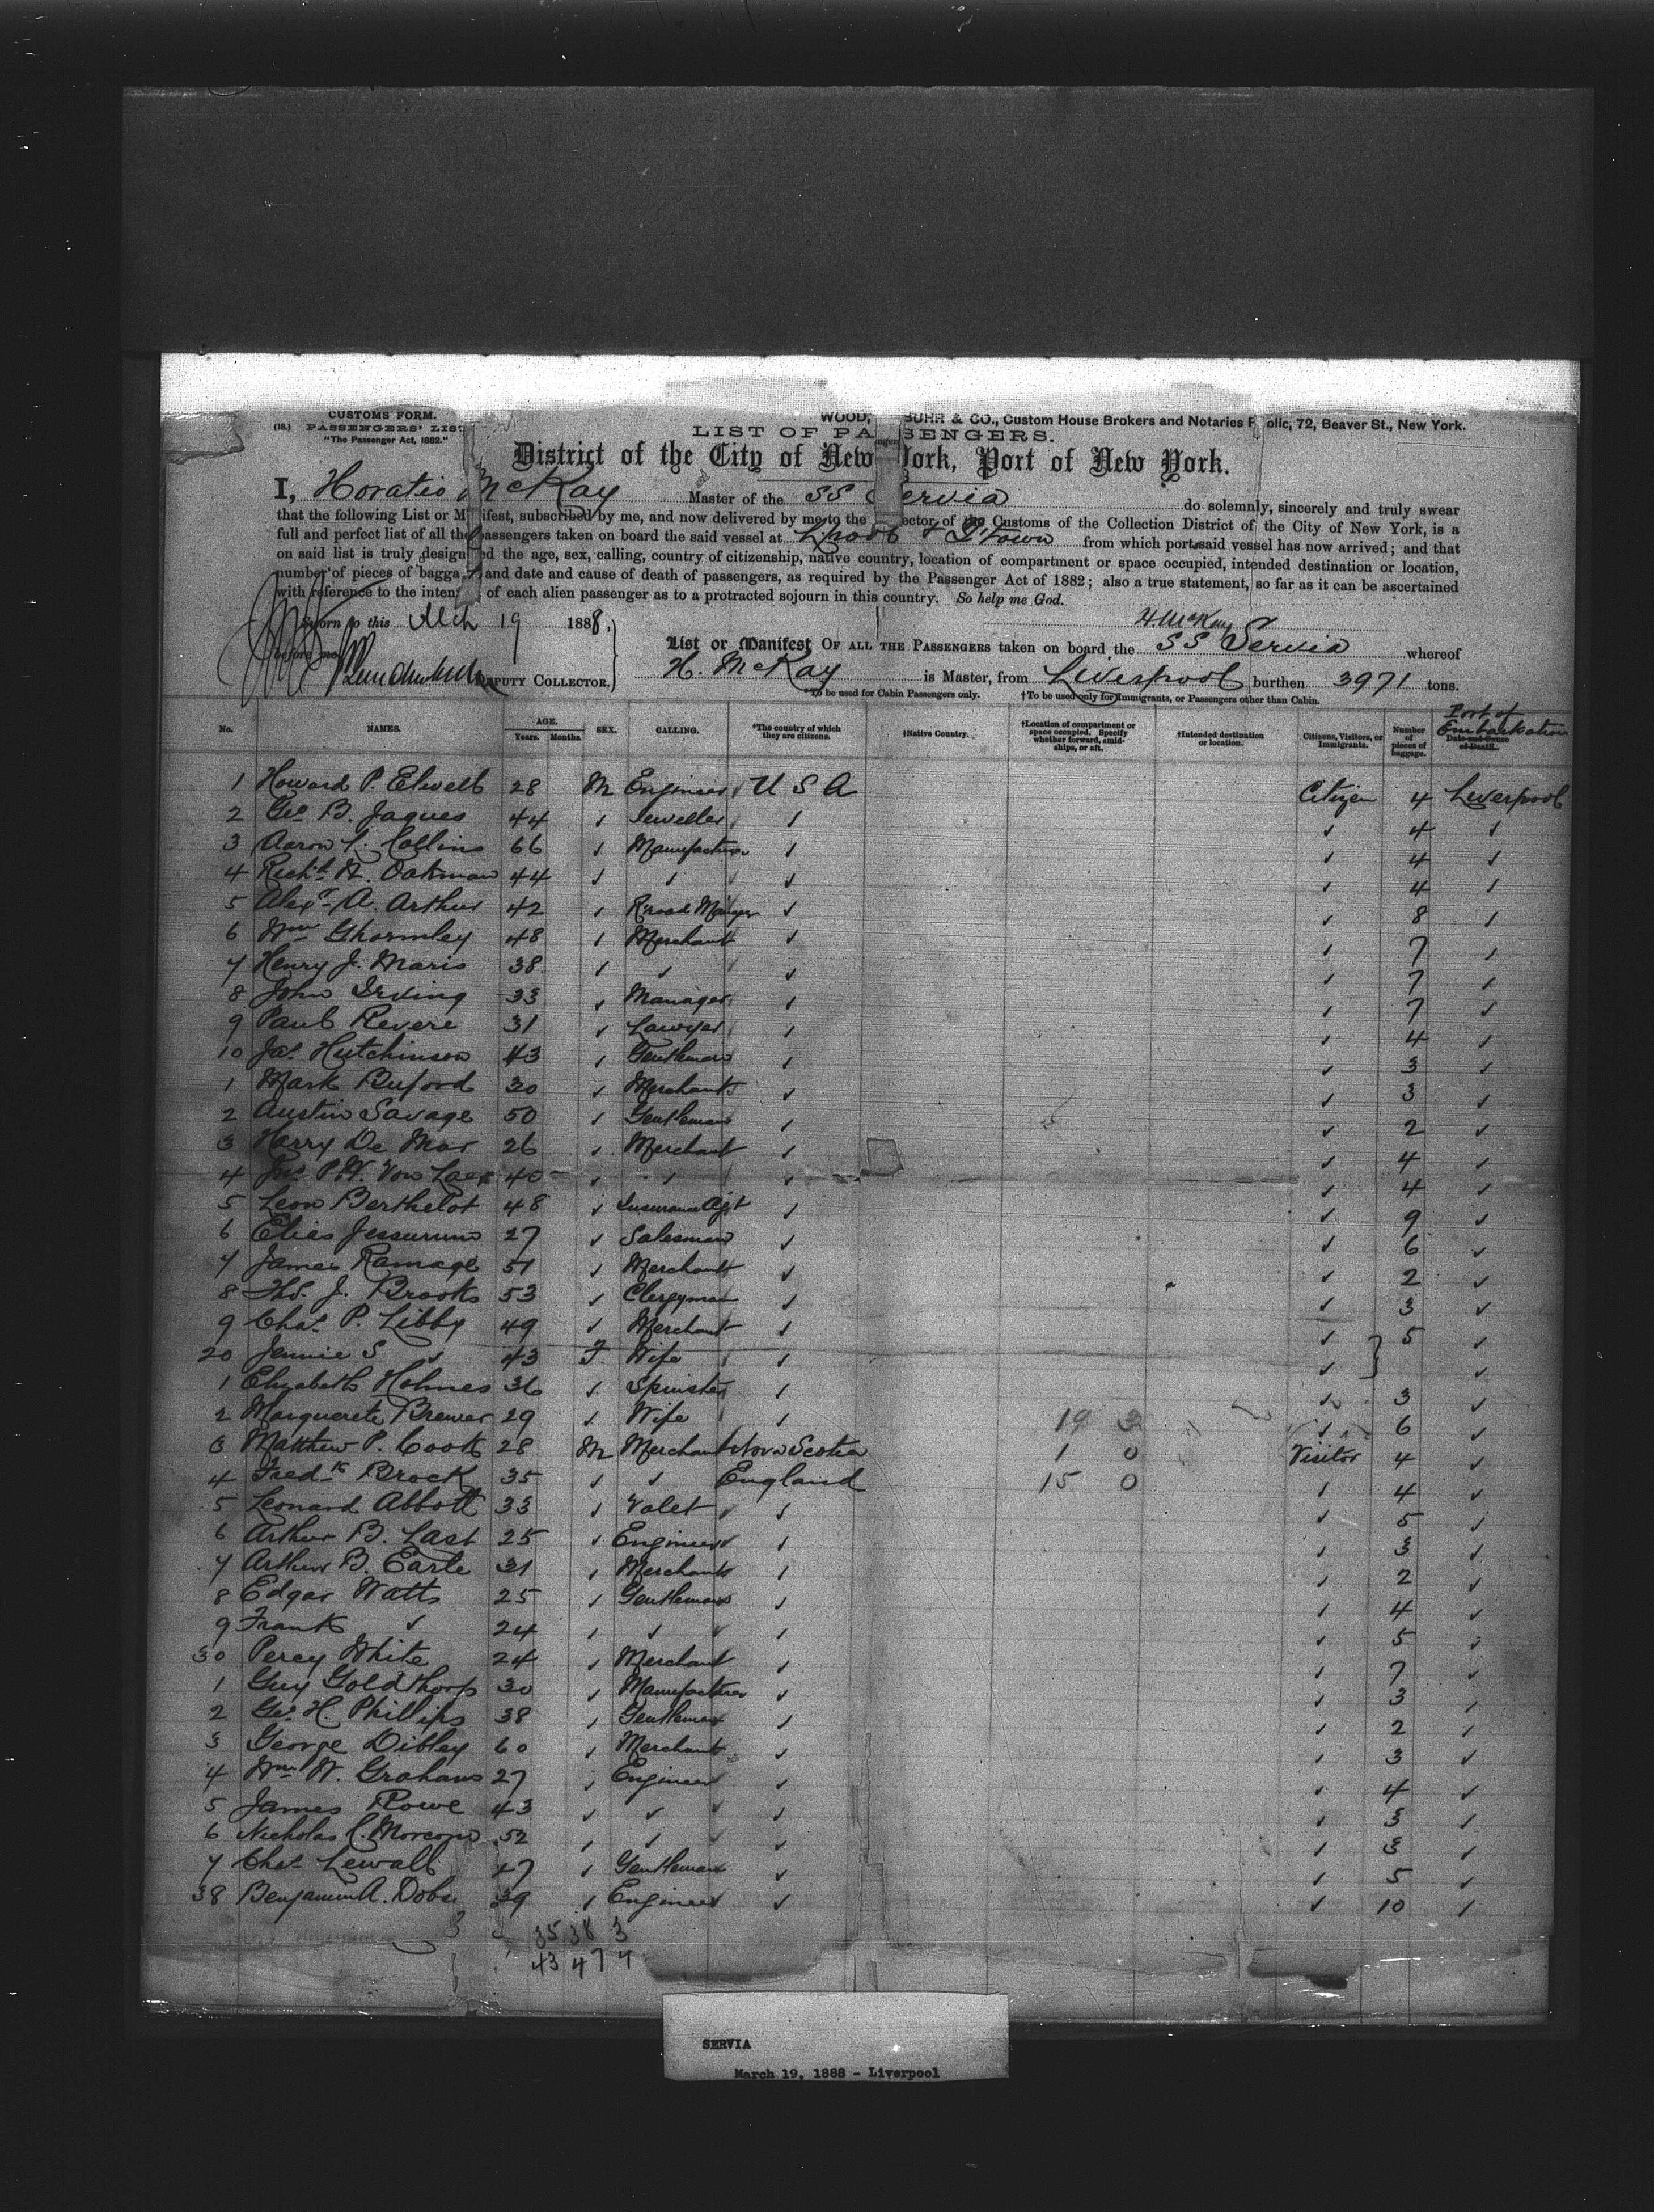 CUSTOMS FORM.
(18.) PASSENGERS' LIST
"The Passenger Act, 1882."
WOOD, BUHR & CO., Custom House Brokers and Notaries P olic, 72, Beaver St., New York.
LIST OF PA SENGERS.
District of the City of New York, Port of New York.
I, Horatio McKay Master of the SS Servia do solemnly, sincerely and truly swear
that the following List or M ifest, subscribed by me, and now delivered by me to the ector of the Customs of the Collection District of the City of New York, is a
full and perfect list of all the passengers taken on board the said vessel at L'pool & Q'town from which port said vessel has now arrived; and that
on said list is truly design ed the age, sex, calling, country of citizenship, native country, location of compartment or space occupied, intended destination or location,
number of pieces of bagga and date and cause of death of passengers, as required by the Passenger Act of 1882; also a true statement, so far as it can be ascertained
with reference to the inten of each alien passenger as to a protracted sojourn in this country. So help me God.
Sworn to this Mch 19 1888, H. McKay
before me
List or Manifest OF ALL THE PASSENGERS taken on board the SS Servia whereof
DEPUTY COLLECTOR. H. McKay is Master, from Liverpool burthen 3971 tons.
*To be used for Cabin Passengers only. †To be used only for Immigrants, or Passengers other than Cabin.
No. NAMES. AGE. Years. Months. SEX. CALLING. *The country of which they are citizens. †Native Country. †Location of compartment or space occupied. Specify whether forward, amidships, or aft. †Intended destination or location. Citizens, Visitors, or Immigrants. Number of pieces of baggage. Port of Embarkation Date and Cause of Death.
1 Howard P. Elwell 28 M Engineer U S A Citizen 4 Liverpool
2 Geo B. Jaques 44 ✓ Jeweller ✓ ✓ 4 ✓
3 Aaron L. Collins 66 ✓ Manufacturer ✓ ✓ 4 ✓
4 Richd A. Oakman 44 ✓ ✓ ✓ ✓ 4 ✓
5 Alexr A. Arthur 42 ✓ R'road Manager ✓ ✓ 8 ✓
6 Wm Ghormley 48 ✓ Merchant ✓ ✓ 7 ✓
7 Henry J. Maris 38 ✓ ✓ ✓ ✓ 7 ✓
8 John Irving 33 ✓ Manager ✓ ✓ 7 ✓
9 Paul Revere 31 ✓ Lawyer ✓ ✓ 4 ✓
10 Jas Hutchinson 43 ✓ Gentleman ✓ ✓ 3 ✓
1 Mark Buford 30 ✓ Merchant ✓ ✓ 3 ✓
2 Austin Savage 50 ✓ Gentleman ✓ ✓ 2 ✓
3 Harry De Mar 26 ✓ Merchant ✓ ✓ 4 ✓
4 Jno P.W. Von Laer 40 ✓ ✓ ✓ ✓ 4 ✓
5 Leon Berthelot 48 ✓ Insurance Agt ✓ ✓ 9 ✓
6 Elias Jessurun 27 ✓ Salesman ✓ ✓ 6 ✓
7 James Ramage 51 ✓ Merchant ✓ ✓ 2 ✓
8 Thos. J. Brooks 53 ✓ Clergyman ✓ ✓ 3 ✓
9 Chas P. Libby 49 ✓ Merchant ✓ ✓ 5 ✓
20 Jennie S ✓ 43 F. Wife ✓ ✓ ✓
1 Elizabeth Holmes 36 ✓ Spinster ✓ ✓ 3 ✓
2 Marguerete Brewer 29 ✓ Wife ✓ 19 3 ✓ 6 ✓
3 Matthew P. Cook 28 M Merchant Nova Scotia 1 0 Visitor 4 ✓
4 Fredk Brock 35 ✓ ✓ England 15 0 ✓ 4 ✓
5 Leonard Abbott 33 ✓ Valet ✓ ✓ 5 ✓
6 Arthur B. Last 25 ✓ Engineer ✓ ✓ 3 ✓
7 Arthur B. Earle 31 ✓ Merchant ✓ ✓ 2 ✓
8 Edgar Watts 25 ✓ Gentleman ✓ ✓ 4 ✓
9 Frank ✓ 24 ✓ ✓ ✓ ✓ 5 ✓
30 Percy White 24 ✓ Merchant ✓ ✓ 7 ✓
1 Guy Goldthorp 30 ✓ Manufacturer ✓ ✓ 3 ✓
2 Geo H. Phillips 38 ✓ Gentleman ✓ ✓ 2 ✓
3 George Dibley 60 ✓ Merchant ✓ ✓ 3 ✓
4 Wm W. Graham 27 ✓ Engineer ✓ ✓ 4 ✓
5 James Rowe 43 ✓ ✓ ✓ ✓ 3 ✓
6 Nicholas C. Morcom 52 ✓ ✓ ✓ ✓ 3 ✓
7 Chas Lewall 27 ✓ Gentleman ✓ ✓ 5 ✓
38 Benjamin A. Dobs 39 ✓ Engineer ✓ ✓ 10 ✓
35 38 3
43 47 4
SERVIA
March 19, 1888 - Liverpool